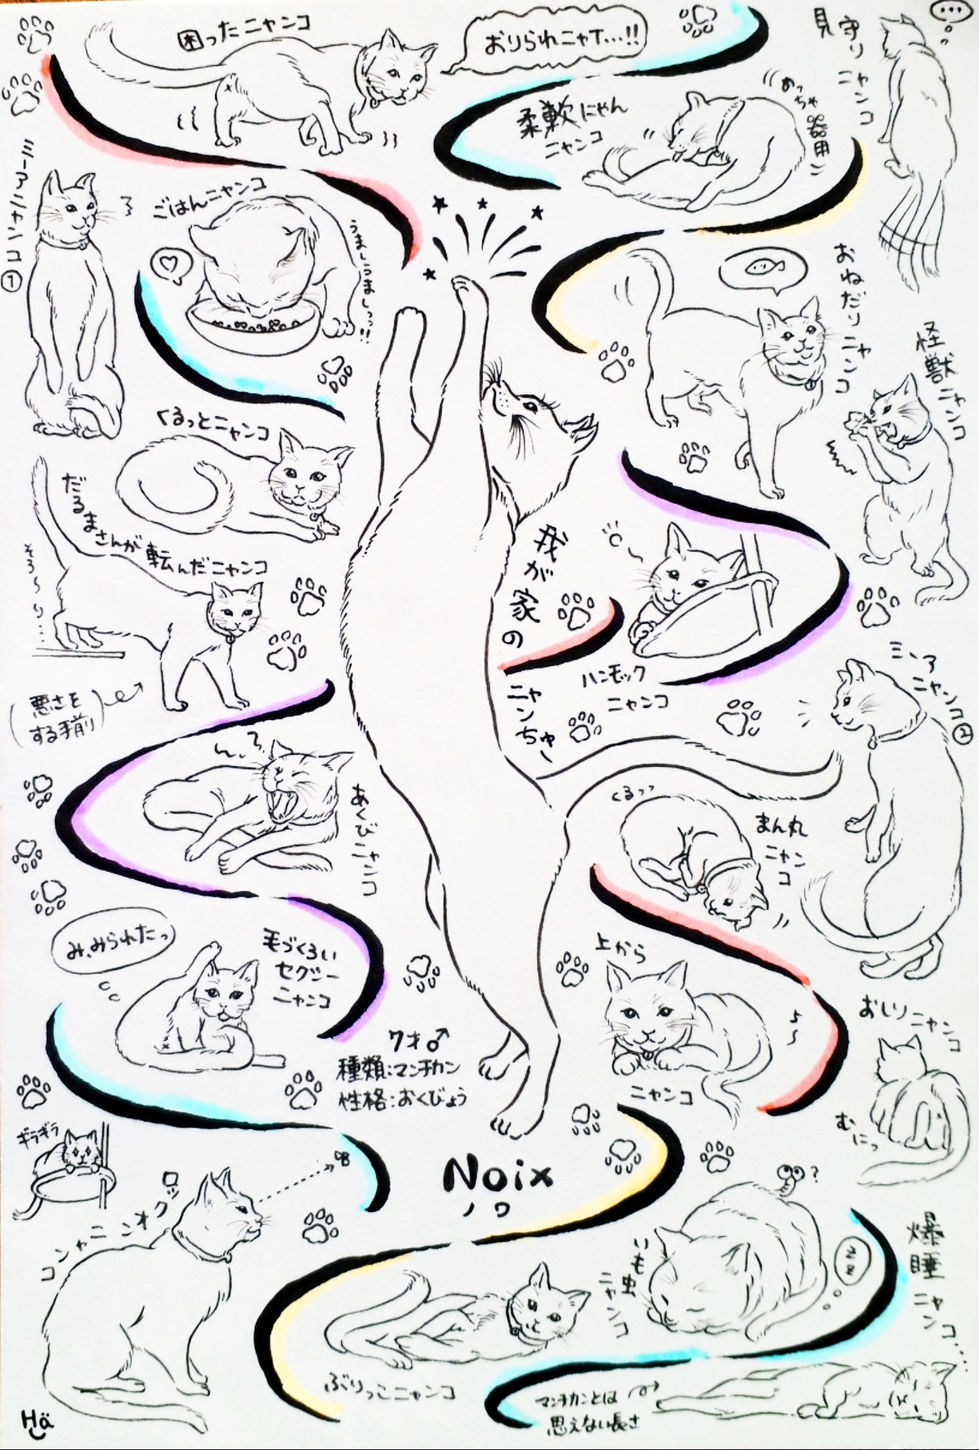 困ったニャンコ
おりられニャT…!!
見守りニャンコ
柔軟にゃん
ニャンコ
めっちゃ器用
ミーアニャンコ①
ごはんニャンコ
うましうましっっ!!
おねだりニャンコ
怪獣ニャンコ
くるっとニャンコ
だるまさんが転んだニャンコ
そろ〜り…
(悪さを
する手前)
我が家の
ニャンちゅー
ハンモック
ニャンコ
ミーアニャンコ②
ん、?
あくびニャンコ
くるっ??
まん丸
ニャンコ
み、みられたっ
毛づくろい
セクシー
ニャンコ
7才♂
種類:マンチカン
性格:おくびょう
上から
ニャンコ
おしりニャンコ
むにっ
ギラギラ
ロックオンニャンコ
Noix
ノワ
いも虫
ニャンコ
?
zzz
爆睡ニャンコ……
ぶりっこニャンコ
マンチカンとは
思えない長さ
Hä